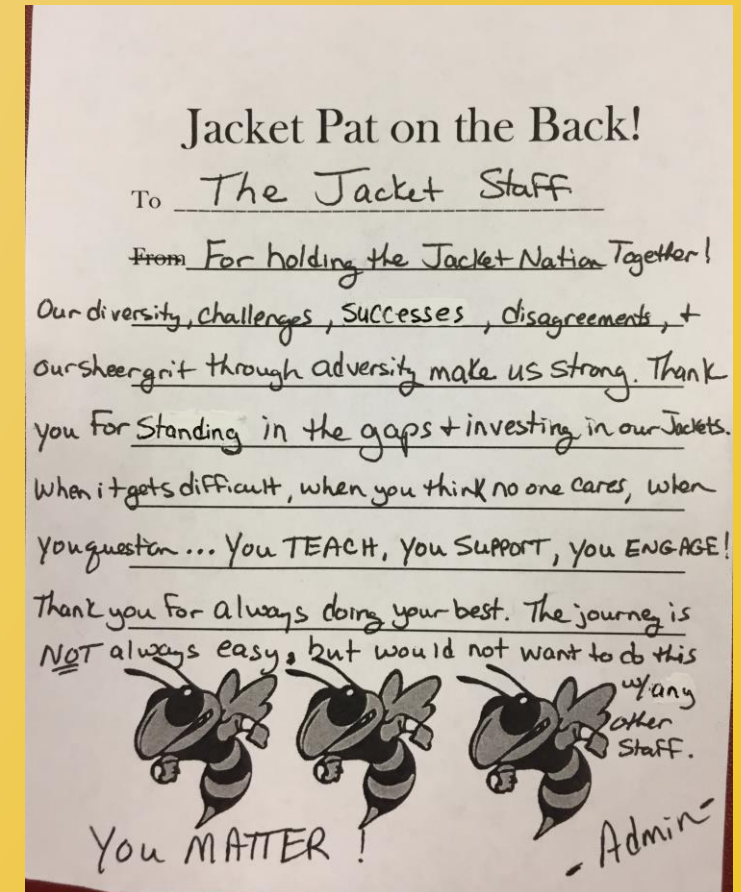 Jacket Pat on the Back!
To The Jacket Staff
From For holding the Jacket Nation Together!
Our diversity, challenges, successes, disagreements, +
our sheer grit through adversity make us strong. Thank
you for Standing in the gaps + investing in our Jackets.
When it gets difficult, when you think no one cares, when
you question... You TEACH, You SUPPORT, you ENGAGE!
Thank you for always doing your best. The journey is
NOT always easy, but would not want to do this
w/ any
other
Staff.
You MATTER!
- Admin -